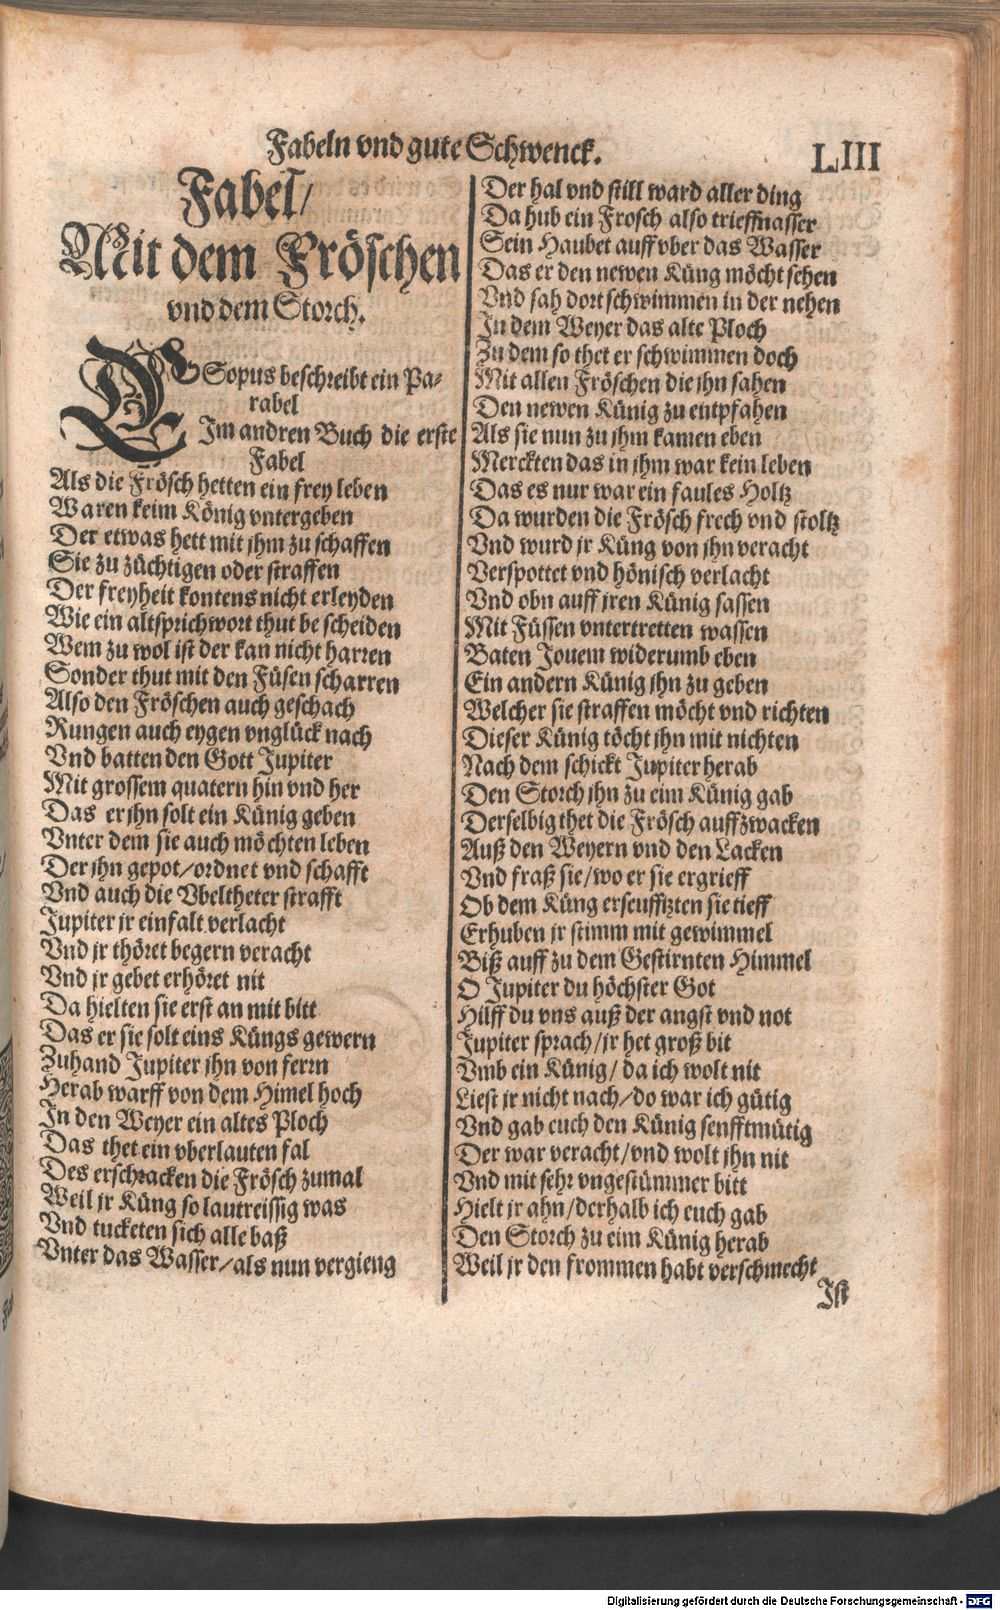 Fabeln vnd gute Schwenck.
LIII
Fabel/
Mit dem Fröschen
vnd dem Storch.
ESopus beschreibt ein Pa-
rabel
Im andren Buch die erste
Fabel
Als die Frösch hetten ein frey leben
Waren keim König vntergeben
Der etwas hett mit jhm zu schaffen
Sie zu züchtigen oder straffen
Der freyheit kontens nicht erleyden
Wie ein altsprichwort thut be scheiden
Wem zu wol ist der kan nicht harren
Sonder thut mit den Füsen scharren
Also den Fröschen auch geschach
Rungen auch eygen vnglück nach
Vnd batten den Gott Jupiter
Mit grossem quatern hin vnd her
Das er jhn solt ein Künig geben
Vnter dem sie auch möchten leben
Der jhn gepot/ordnet vnd schafft
Vnd auch die Vbeltheter strafft
Jupiter jr einfalt verlacht
Vnd jr thöret begern veracht
Vnd jr gebet erhöret nit
Da hielten sie erst an mit bitt
Das er sie solt eins Küngs gewern
Zuhand Jupiter jhn von ferrn
Herab warff von dem Himel hoch
In den Weyer ein altes Ploch
Das thet ein vberlauten fal
Des erschracken die Frösch zumal
Weil jr Küng so lautreissig was
Vnd tucketen sich alle baß
Vnter das Wasser/als nun vergieng
Der hal vnd still ward aller ding
Da hub ein Frosch also trieffnasser
Sein Haubet auff vber das Wasser
Das er den newen Küng möcht sehen
Vnd sah dort schwimmen in der nehen
In dem Weyer das alte Ploch
Zu dem so thet er schwimmen doch
Mit allen Fröschen die jhn sahen
Den newen Künig zu entpfahen
Als sie nun zu jhm kamen eben
Merckten das in jhm war kein leben
Das es nur war ein faules Holtz
Da wurden die Frösch frech vnd stoltz
Vnd wurd jr Küng von jhn veracht
Verspottet vnd hönisch verlacht
Vnd obn auff jren Künig sassen
Mit Füssen vntertretten wassen
Baten Jouem widerumb eben
Ein andern Künig jhn zu geben
Welcher sie straffen möcht vnd richten
Dieser Künig töcht jhn mit nichten
Nach dem schickt Jupiter herab
Den Storch jhn zu eim Künig gab
Derselbig thet die Frösch auffzwacken
Auß den Weyern vnd den Lacken
Vnd fraß sie/wo er sie ergrieff
Ob dem Küng erseufftzten sie tieff
Erhuben jr stimm mit gewimmel
Biß auff zu dem Gestirnten Himmel
O Jupiter du höchster Got
Hilff du vns auß der angst vnd not
Jupiter sprach/jr het groß bit
Vmb ein Künig/ da ich wolt nit
Liest jr nicht nach/do war ich gütig
Vnd gab euch den Künig senfftmütig
Der war veracht/vnd wolt jhn nit
Vnd mit sehr vngestümmer bitt
Hielt jr ahn/derhalb ich euch gab
Den Storch zu eim Künig herab
Weil jr den frommen habt verschmecht
Ist
Digitalisierung gefördert durch die Deutsche Forschungsgemeinschaft - DFG